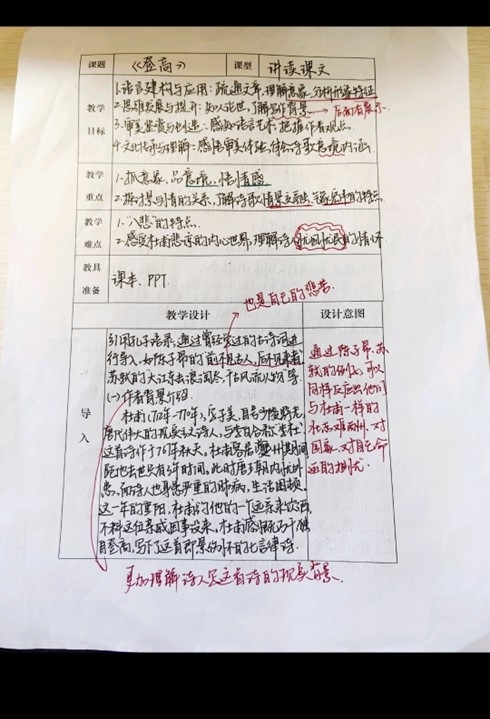 课题 《登高》 课型 讲读课文
教学目标
1.语言建构与应用：疏通文章，理解意象，分析形象特征
2.思维发展与提升：知人论世，了解写作背景 → 后面有展示
3.审美鉴赏与创造：感知语言艺术，把握作者观点
4.文化传承与理解：感悟审美体验，体会诗歌意境
教学重点
1.抓意象，品意境，悟情感
2.探讨景与情的关系，了解诗歌情景交融，的特点
教学难点
1."八悲"的特点
2.感受杜甫悲凉的内心世界，理解诗人忧国忧民的情怀
也是自己的悲苦
教具准备
课本、PPT
教学设计 设计意图
导入
引用孔子语录，通过曾经学过的古诗词进
行导入，如陈子昂的"前不见古人，后不见来者"
苏轼的"大江东去，浪淘尽，千古风流人物"等
(一)作者背景介绍
杜甫(712年—770年)，字子美，自号少陵野老，
唐代伟大的现实主义诗人，与李白合称"李杜"
这首诗作于767年秋天，杜甫寄居夔州期间
距他去世只有3年时间，此时唐王朝内忧外
患，而诗人也身患严重的肺病，生活困顿
这一年的重阳，杜甫约他的一个远亲来饮酒
不料这位亲戚因事没来，杜甫感慨万千，独
自登高，写下了这首即景抒怀的七言律诗。
通过陈子昂、苏
轼的例子，可以
同样反应出他们
与杜甫一样的
壮志难酬、对
国家、对自己命
运的担忧
更加理解诗人写这首诗的现实背景